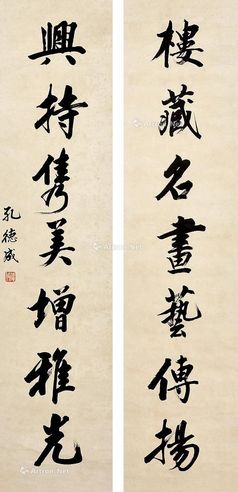 樓藏名畫藝傳揚
興持雋美增雅光
孔德成